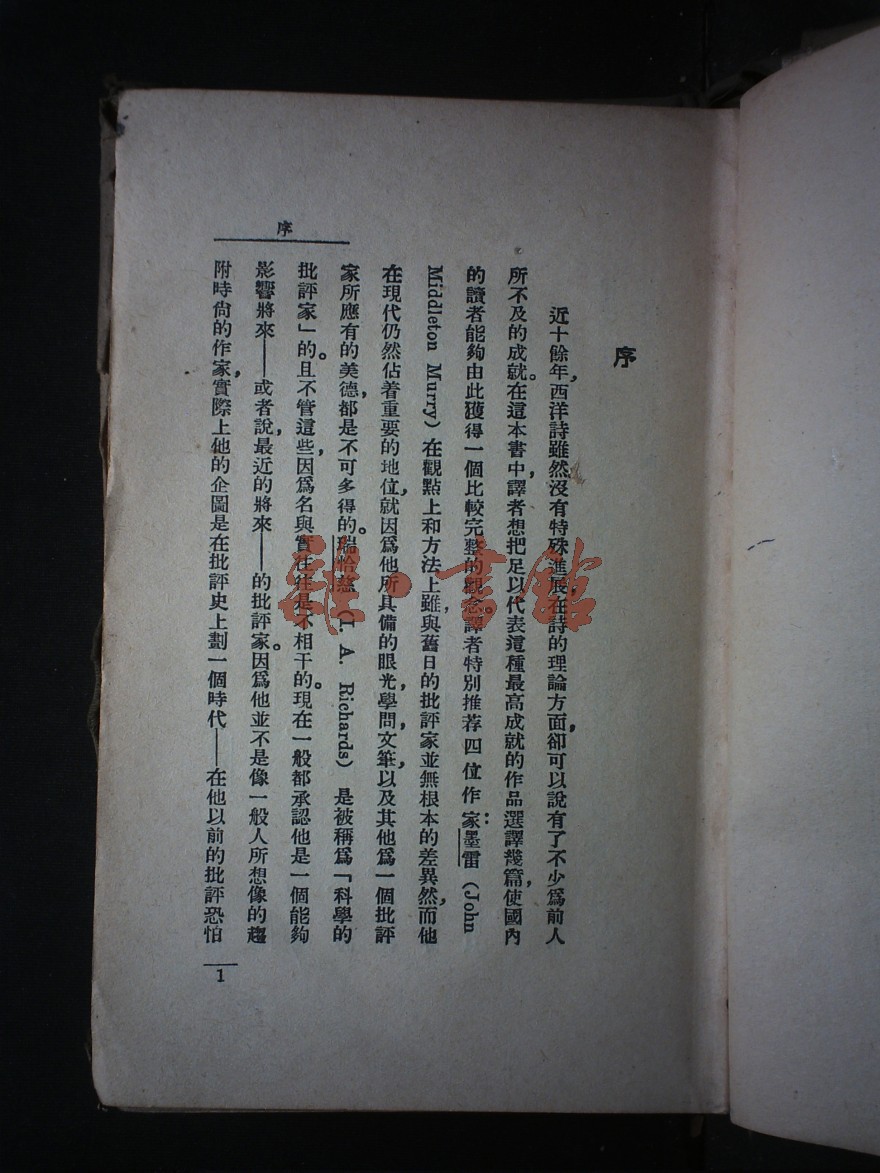 序
近十餘年，西洋詩雖然沒有特殊進展，在詩的理論方面，卻可以說有了不少爲前人
所不及的成就。在這本書中，譯者想把足以代表這種最高成就的作品選譯幾篇，使國內
的讀者能夠由此獲得一個比較完整的觀念。譯者特別推荐四位作家：墨雷（John
Middleton Murry）在觀點上和方法上，雖與舊日的批評家並無根本的差異，然而他
在現代仍然佔着重要的地位，就因爲他所具備的眼光，學問，文筆，以及其他爲一個批評
家所應有的美德，都是不可多得的。瑞恰慈（I. A. Richards）是被稱爲「科學的
批評家」的。且不管這些，因爲名與實往往是不相干的。現在一般都承認他是一個能夠
影響將來——或者說，最近的將來——的批評家。因爲他並不是像一般人所想像的趨
附時尚的作家，實際上他的企圖是在批評史上劃一個時代——在他以前的批評恐怕
序
1
雜·書館